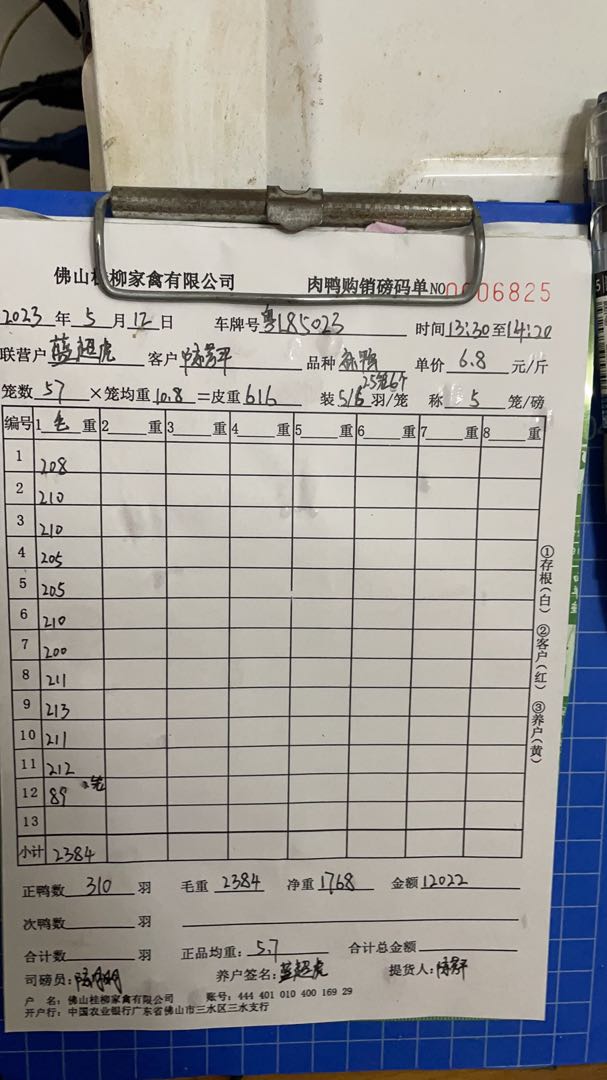 佛山桂柳家禽有限公司 肉鸭购销磅码单 NO 0006825
2023 年 5 月 12 日 车牌号 粤185023 时间 13:30 至 14:20
联营户 蓝超虎 客户 品种 单价 6.8 元/斤
25笼6个
笼数 57 ×笼均重 10.8 =皮重 616 装 5/6 羽/笼 称 5 笼/磅
编号 1 毛 重 2 重 3 重 4 重 5 重 6 重 7 重 8 重
1 208
2 210
3 210
4 205
5 205
6 210
7 200
8 211
9 213
10 211
11 212
12 89 2笼
13
小计 2384
正鸭数 310 羽 毛重 2384 净重 1768 金额 12022
次鸭数 羽
合计数 羽 正品均重: 5.7 合计总金额
司磅员: 养户签名: 蓝超虎 提货人:
户 名: 佛山桂柳家禽有限公司 账号: 444 401 010 400 169 29
开户行: 中国农业银行广东省佛山市三水区三水支行
①存根(白) ②客户(红) ③养户(黄)